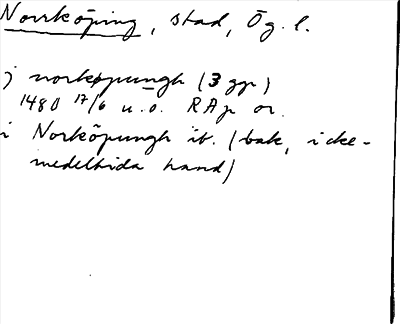 Norrköping, stad, Ög. l.
j norkøpungh (3 ggr)
1480 17/6 u.o. RAp or.
i Norköpungh ib. (bak, icke-
medeltida hand)